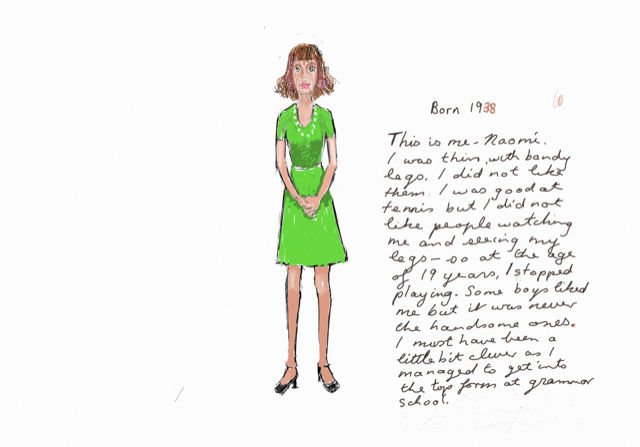 Born 1938
This is me - Naomi.
I was thin, with bandy
legs. I did not like
them. I was good at
tennis but I did not
like people watching
me and seeing my
legs - so at the age
of 19 years, I stopped
playing. Some boys liked
me but it was never
the handsome ones.
I must have been a
little bit clever as I
managed to get into
the top form at grammar
school.